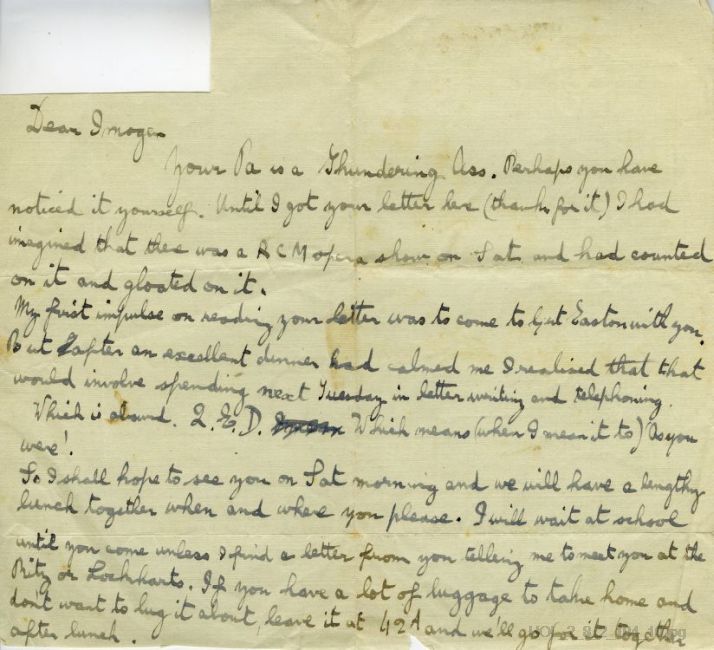 Dear Imogen
Your Pa is a Thundering Ass. Perhaps you have
noticed it yourself. Until I got your letter here (thanks for it) I had
imagined that there was a R C M opera show on Sat and had counted
on it and gloated on it.
My first impulse on reading your letter was to come to Gt Easton with you.
But after an excellent dinner had calmed me I realised that that
would involve spending next Tuesday in letter writing and telephoning.
Which is absurd. Q. E. D. Which means (when I mean it to) 'As you
were'.
So I shall hope to see you on Sat morning and we will have a lengthy
lunch together when and where you please. I will wait at school
until you come unless I find a letter from you telling me to meet you at the
Ritz or Lockharts. If you have a lot of luggage to take home and
dont want to lug it about, leave it at 42A and we'll go for it together
after lunch.